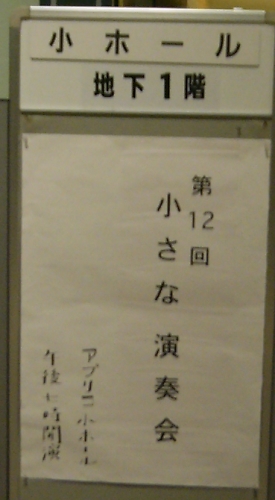 小ホール
地下1階
第12回
小さな演奏会
アプリコ小ホール
午後七時開演